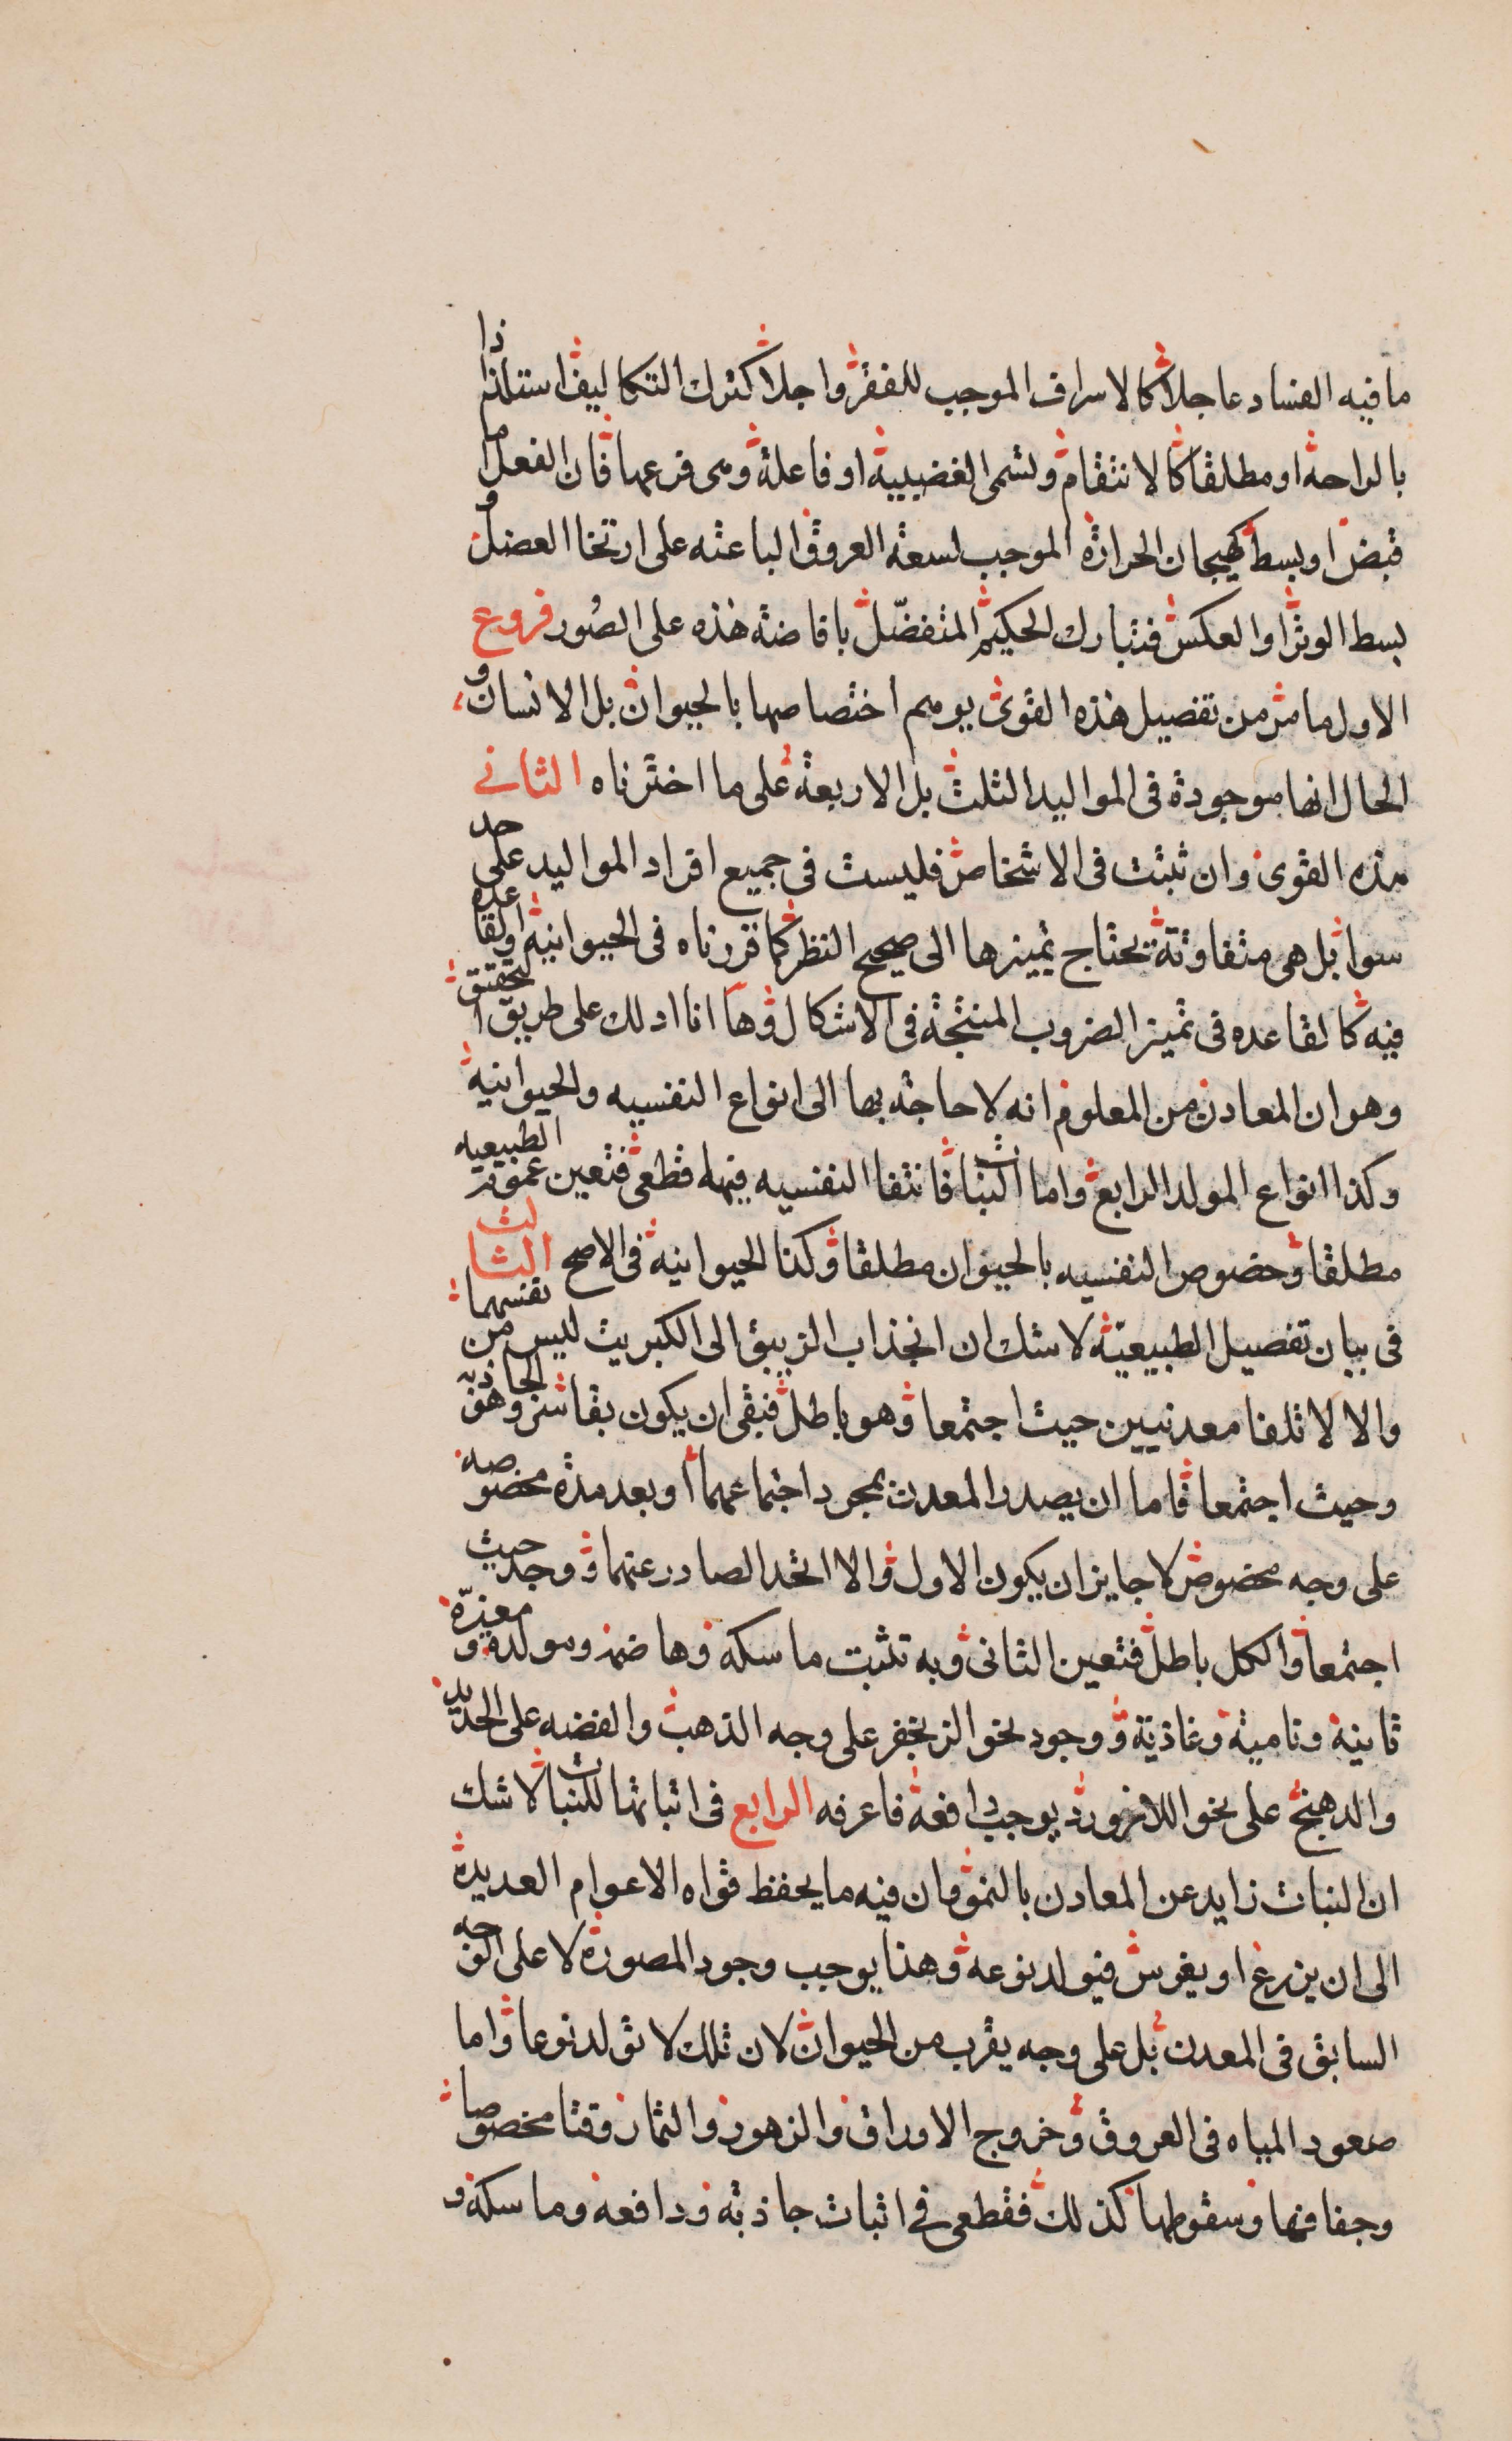 ما فيه الفساد عاجلا كالاسراف الموجب للفقر واجلا كترك التكاليف استلذاذا
بالراحه او مطلقا كالانتقام وتسمى الغضبيية او فاعلة وهى فرعها فان الفعل اما
قبض او بسط كهيجان الحرارة الموجب لسعة العروق الباعثه على ارتخا العضل و
بسط الوتر او العكس فتبارك الحكيم المتفضّل بافاضة هذه على الصُور فروع
الاول ما مر من تفصيل هذه القوى يوهم اختصاصها بالحيوان بل الانسان و
الحال انها موجودة فى المواليد الثلث بل الاربعة على ما اخترناه الثانى
هذه القوى وان ثبتت فى الاشخاص فليست فى جميع افراد المواليد على حد
سوا بل هى متفاوتة تحتاج تميزها الى صحيح النظر كما قررناه فى الحيوانية او لقاعده
فيه كالقاعده فى تميز الضروب المنتجة فى الاشكال وها انا ادلك على طريق التحقيق
وهو ان المعادن من المعلوم انه لا حاجة بها الى انواع النفسيه والحيوانية
وكذا انواع المولد الرابع واما النبات فانتفا النفسيه فيها قطعى فتعين عموم الطبيعيه
مطلقا وخصوص النفسيه بالحيوان مطلقا وكذا الحيوانية فى الاصح الثالث
فى بيان تفصيل الطبيعيّة لا شك ان انجذاب الزيبق الى الكبريت ليس من نفسهما
والا لا تلفا معدنيين حيث اجتمعا وهو باطل فبقى ان يكون بقاسر وهو الجاذبة
وحيث اجتمعا فاما ان يصدر المعدن بمجرد اجتماعهما او بعد مدة مخصوصه
على وجه مخصوص لا جايز ان يكون الاول والا اتحد الصادر عنهما ووجد حيث
اجتمعا والكل باطل فتعين الثانى وبه تثبت ماسكة وهاضمة ومولدة و مغيرّة
ثانية ونامية وغاذية ووجود نحو الزنجفر على وجه الذهب والفضه على الحديد
والدهنج على نحو اللازورد يوجب دافعة فاعرفه الرابع فى اثباتها للنبات لا شك
ان النبات زايد عن المعادن بالنمو وان فيه ما يحفظ قواه الاعوام العديدة
الى ان يزرع او يغرس فيولد نوعه وهذا يوجب وجود المصورة لا على الوجه
السابق فى المعدن بل على وجه يقرب من الحيوان لان تلك لا تولد نوعا واما
صعود المياه فى العروق وخروج الاوراق والزهور والثمار وقتا مخصوصا
وجفافها وسقوطها كذلك فقطعى فى اثبات جاذبة ودافعة وماسكة و